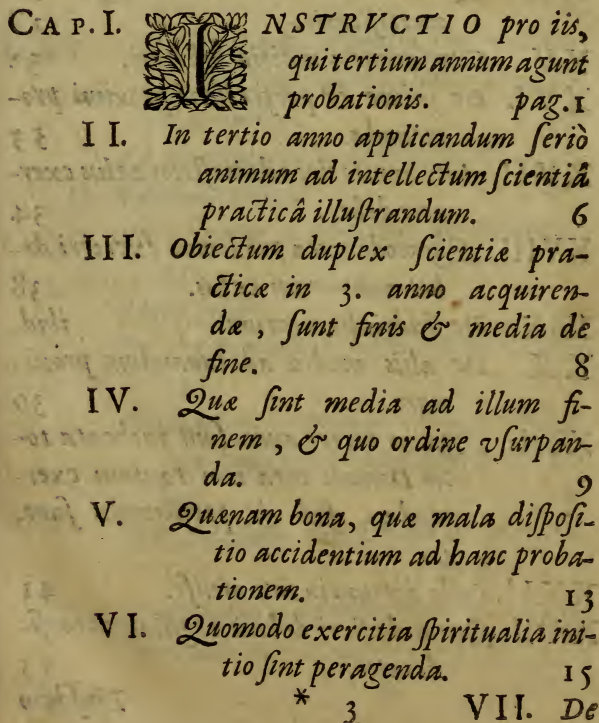 CAP. I. INSTRVCTIO pro iis,
qui tertium annum agunt
probationis. pag. 1
II. In tertio anno applicandum ſeriò
animum ad intellectum ſcientiâ
practicâ illuſtrandum. 6
III. Obiectum duplex ſcientiæ pra-
cticæ in 3. anno acquiren-
dæ, ſunt finis & media de
fine. 8
IV. Quæ ſint media ad illum fi-
nem, & quo ordine vſurpan-
da. 9
V. Quænam bona, quæ mala diſpoſi-
tio accidentium ad hanc proba-
tionem. 13
VI. Quomodo exercitia ſpiritualia ini-
tio ſint peragenda. 15
* 3 VII. De